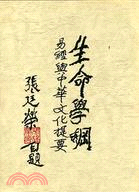 生命學綱
易經與中華文化提要
張廷榮自題